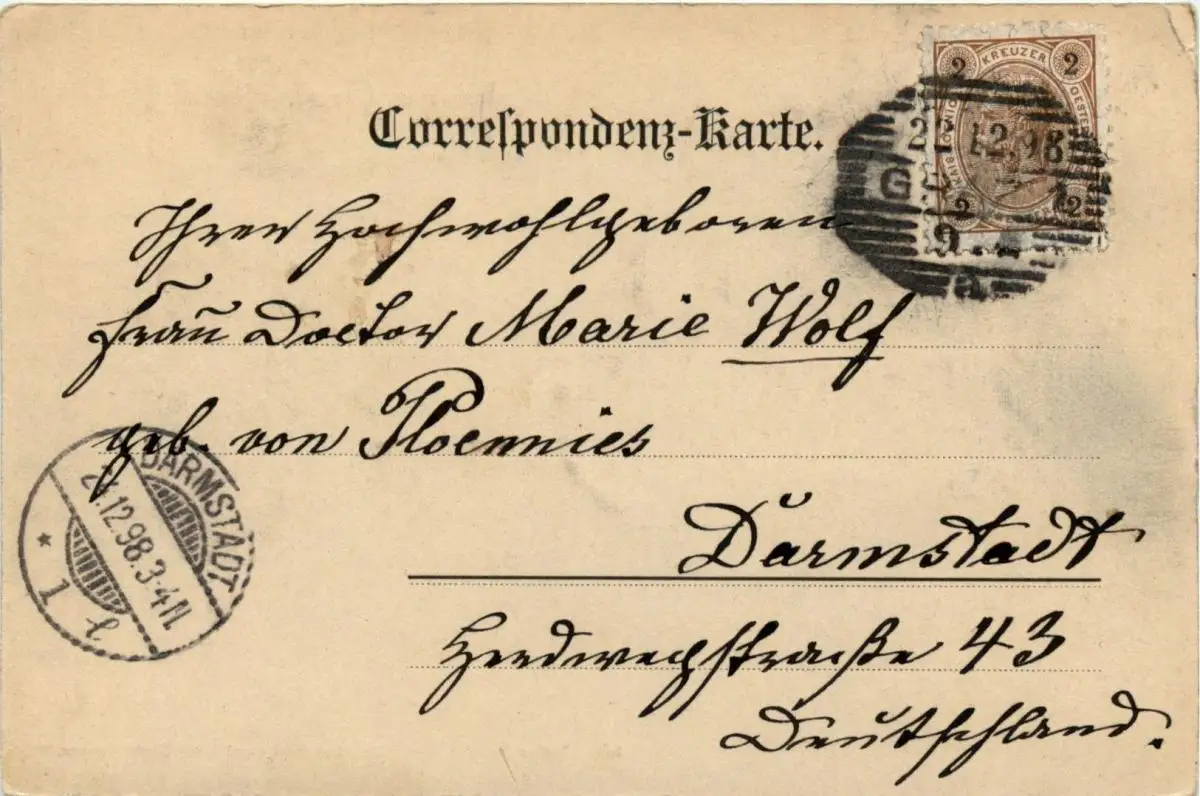 Correspondenz-Karte.
2 KREUZER 2
2 2
12.98
G
9
Ihrer Hochwohlgeboren
Frau Doctor Marie Wolf
geb. von Ploennies
Darmstadt
Herdwegstraße 43
Deutschland.
DARMSTADT
12.98.3-4N.
* 1